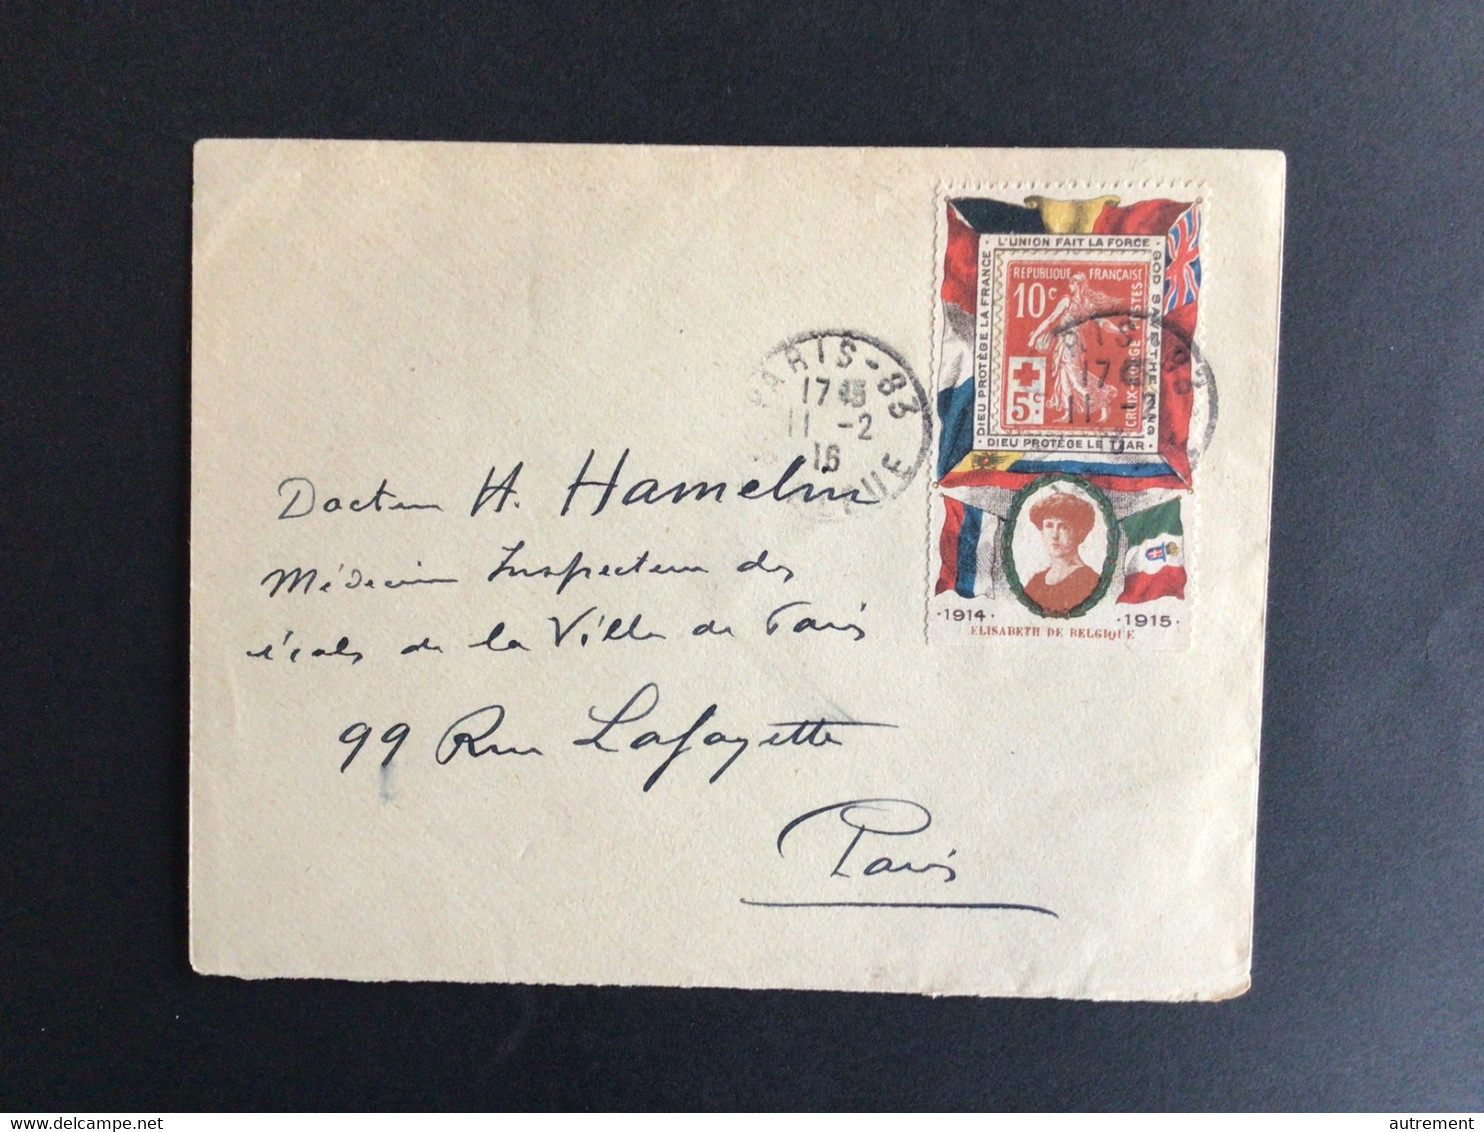 L'UNION FAIT LA FORCE
DIEU PROTÈGE LA FRANCE
GOD SAVE THE KING
DIEU PROTÈGE LE TSAR
REPUBLIQUE FRANÇAISE
10c
5c
CROIX-ROUGE POSTES
PARIS-83
17 45
11 -2
16
RIS 83
17
11
·1914· ·1915·
ELISABETH DE BELGIQUE
Docteur H. Hamelin
Médecin Inspecteur des
écoles de la Ville de Paris
99 Rue Lafayette
Paris
delcampe.net
autrement